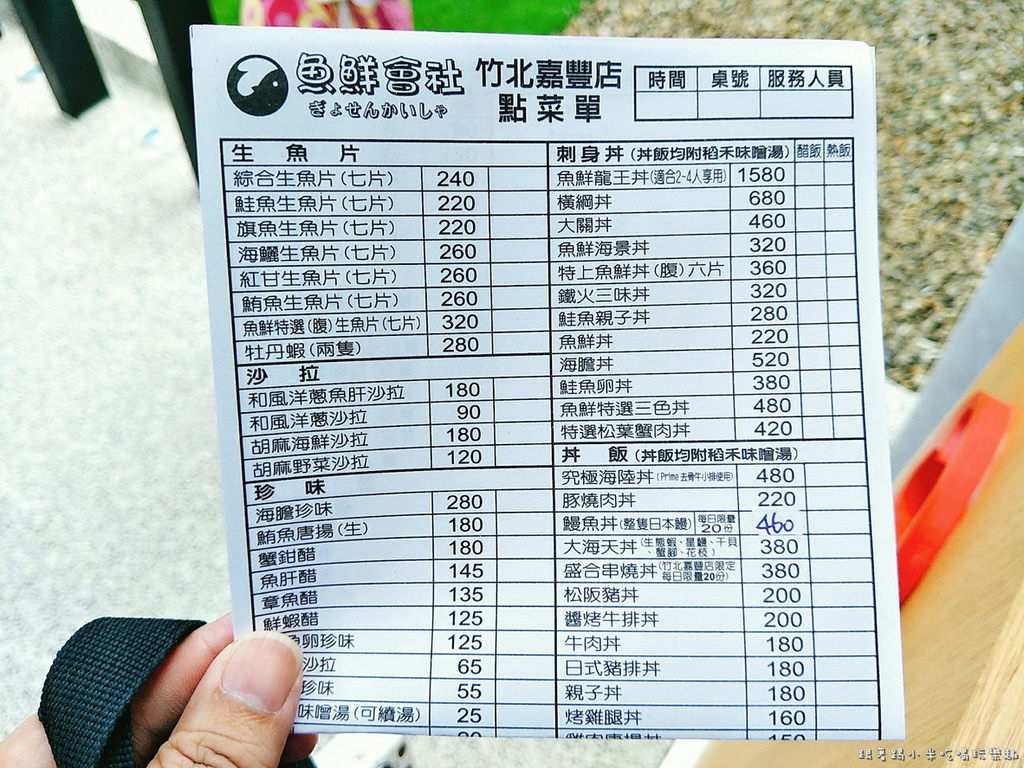 魚鮮會社 竹北嘉豐店
ぎょせんかいしゃ 點菜單
時間 桌號 服務人員
生魚片
綜合生魚片(七片) 240
鮭魚生魚片(七片) 220
旗魚生魚片(七片) 220
海鱺生魚片(七片) 260
紅甘生魚片(七片) 260
鮪魚生魚片(七片) 260
魚鮮特選(腹)生魚片(七片) 320
牡丹蝦(兩隻) 280
沙拉
和風洋蔥魚肝沙拉 180
和風洋蔥沙拉 90
胡麻海鮮沙拉 180
胡麻野菜沙拉 120
珍味
海膽珍味 280
鮪魚唐揚(生) 180
蟹鉗醋 180
魚肝醋 145
章魚醋 135
鮮蝦醋 125
卵珍味 125
沙拉 65
珍味 55
味噌湯(可續湯) 25
刺身丼(丼飯均附稻禾味噌湯) 醋飯 熱飯
魚鮮龍王丼(適合2-4人享用) 1580
橫綱丼 680
大關丼 460
魚鮮海景丼 320
特上魚鮮丼(腹)六片 360
鐵火三味丼 320
鮭魚親子丼 280
魚鮮丼 220
海膽丼 520
鮭魚卵丼 380
魚鮮特選三色丼 480
特選松葉蟹肉丼 420
丼飯(丼飯均附稻禾味噌湯)
究極海陸丼(Prime去骨牛小排使用) 480
豚燒肉丼 220
鰻魚丼(整隻日本鰻) 每日限量20份 460
大海天丼(生態蝦、星鰻、干貝、蟹腳、花枝) 380
盛合串燒丼(竹北嘉豐店限定每日限量20份) 380
松阪豬丼 200
醬烤牛排丼 200
牛肉丼 180
日式豬排丼 180
親子丼 180
烤雞腿丼 160
跟著踢小米吃喝玩樂趣